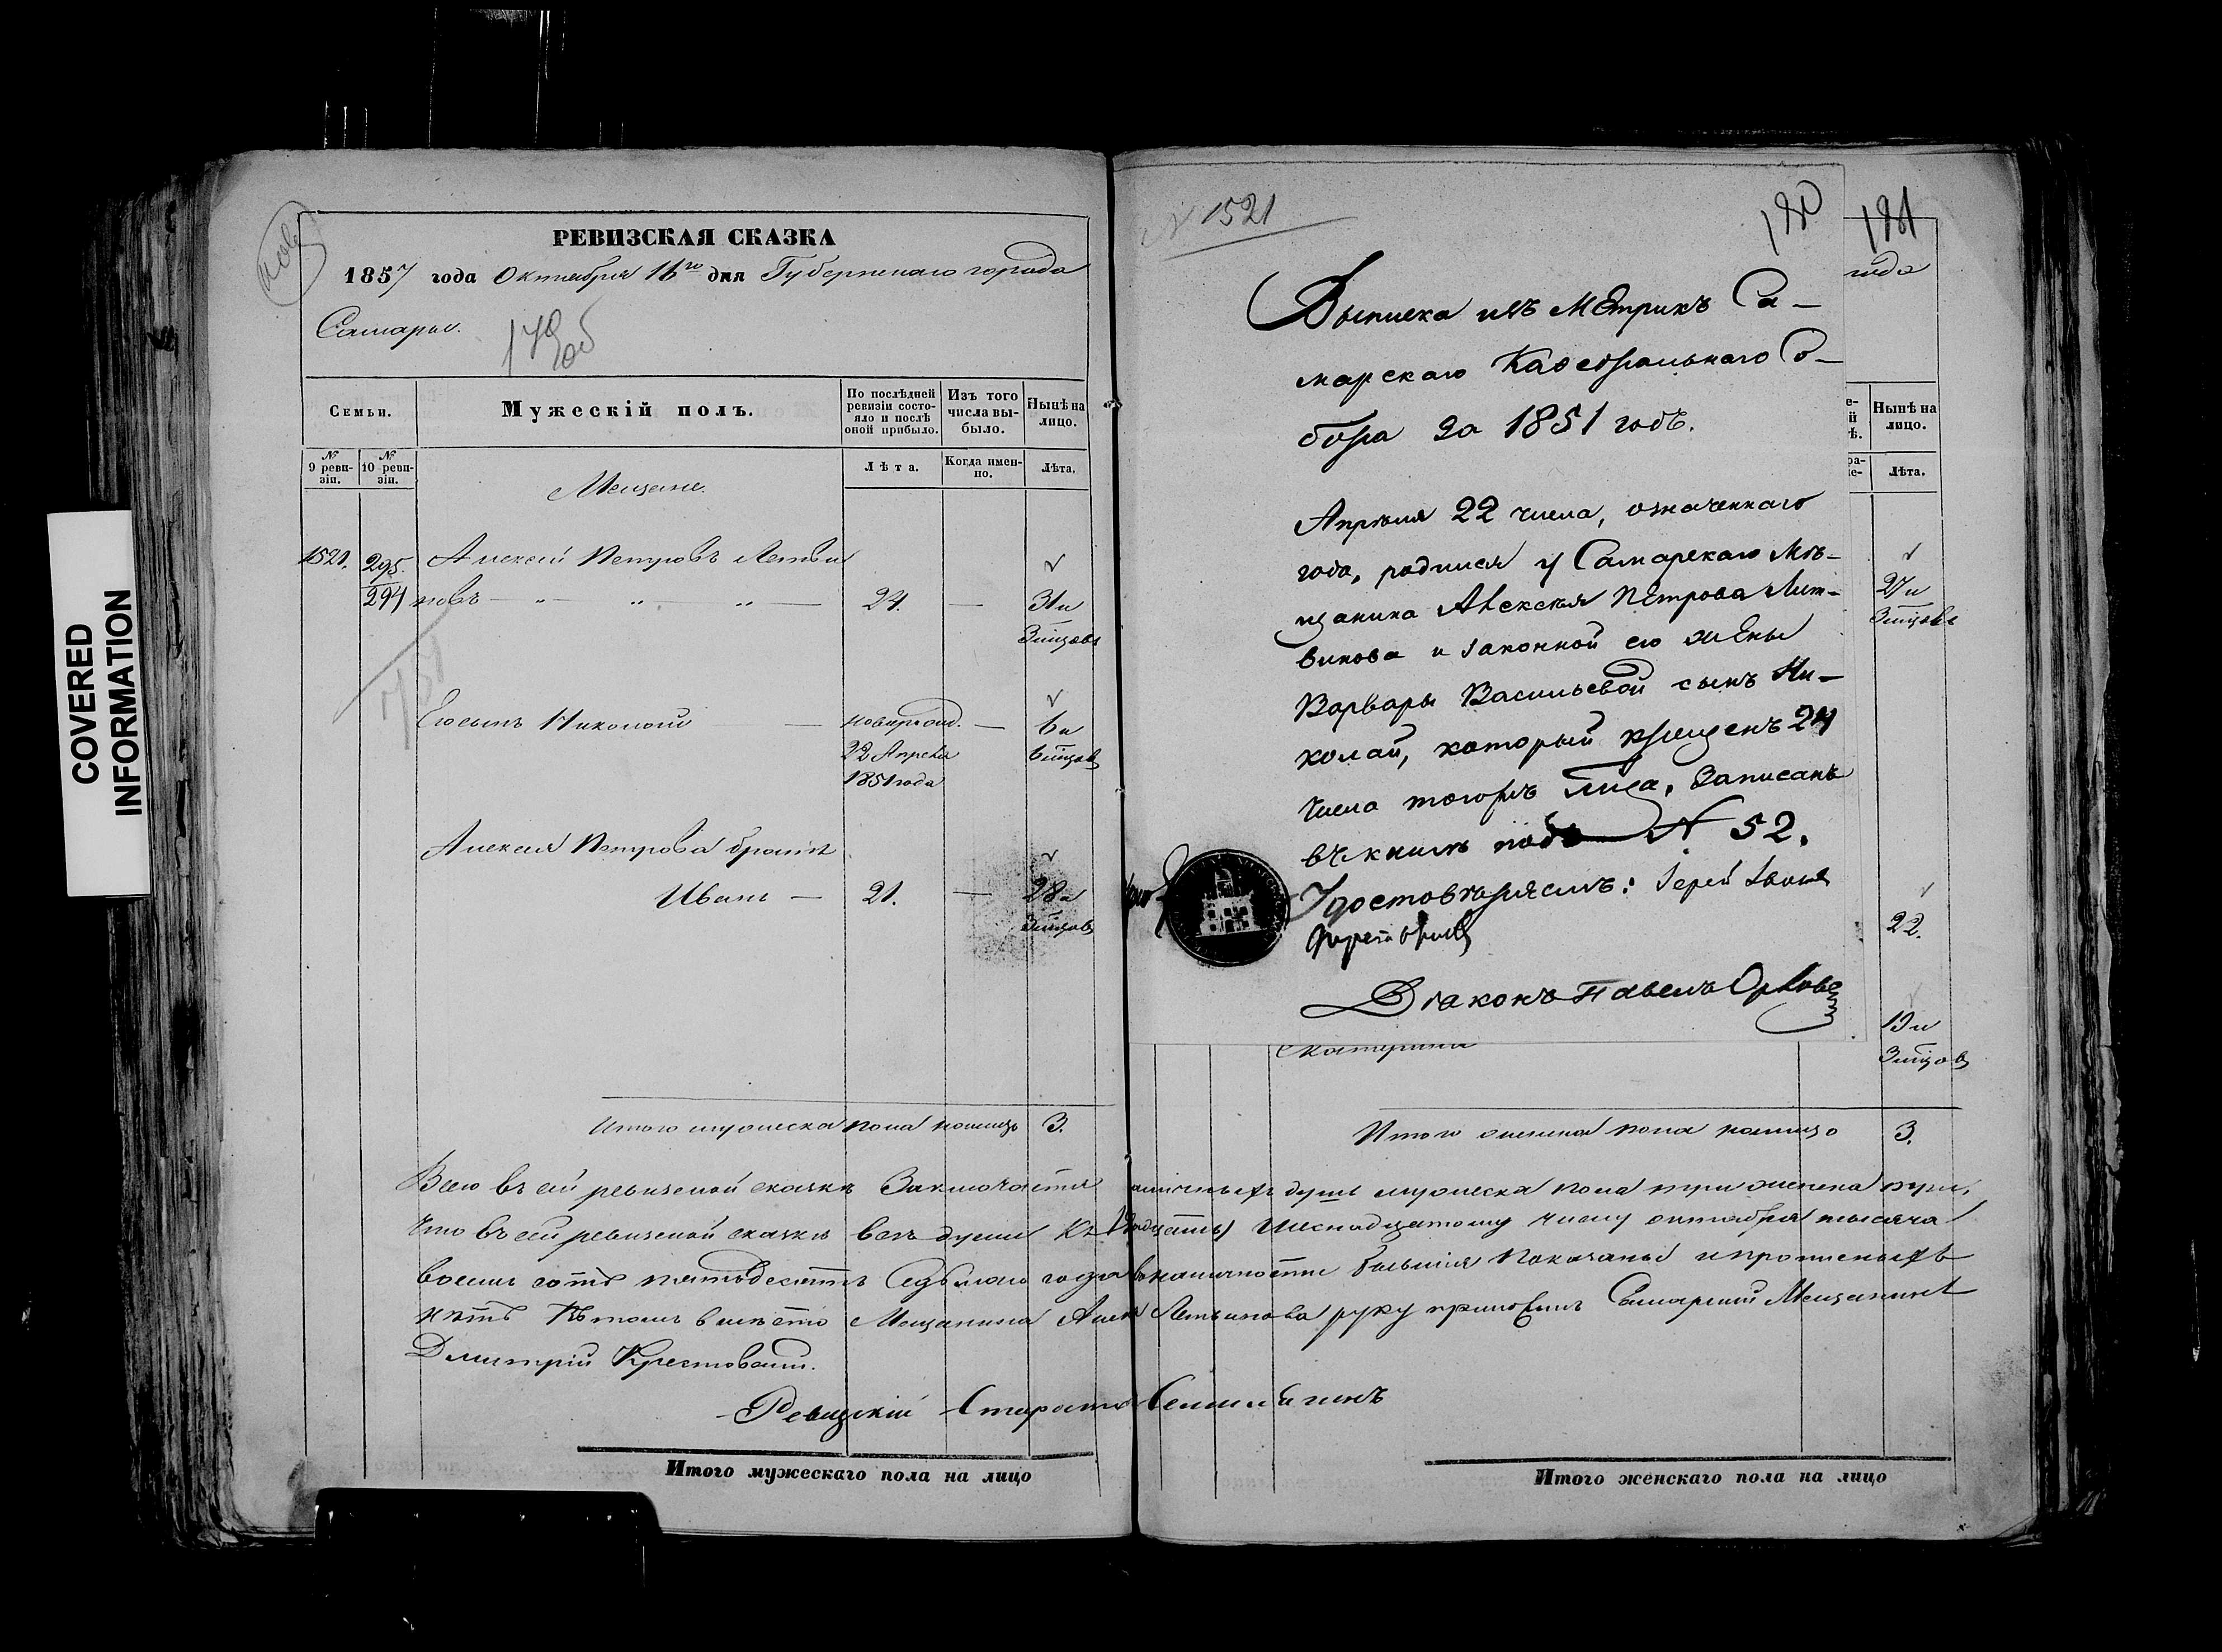 РЕВИЗСКАЯ СКАЗКА
1857 года Октября 16го дня Губернскаго города
Самары.
Семьи.
Мужескій полъ.
По послѣдней ревизіи состояло и послѣ оной прибыло.
Изъ того числа выбыло.
Нынѣ на лицо.
№ 9 ревизіи.
№ 10 ревизіи.
Лѣта.
Когда именно.
Лѣта.
Мещане.
1521. 295 Алексей Петровъ Летви
294 новъ 24. — 31 и
Его сынъ Николай — новорожд. — 6 и
22 Апреля
1851 года
Алексея Петрова братъ
Иванъ — 21. — 28 и
Итого мужеска пола налицо 3.
№ 1521
180
181
года
Выписка изъ Метрикъ Са-
марскаго Каѳедральнаго Со-
бора за 1851 годъ.
Апрѣля 22 числа, означеннаго
года, родился у Самарскаго Мѣ-
щанина Алексѣя Петрова Лит-
винова и законной его жены
Варвары Васильевой сынъ Ни-
колай, который крещенъ 24
числа тогожъ м-ца, записанъ
въ книгѣ подъ № 52.
Удостовѣряемъ: Іерей Іоаннъ
Діаконъ Павелъ Орловъ
Нынѣ на лицо.
Лѣта.
27 и
22.
19 и
Катерина
Итого женска пола налицо 3.
Всего въ сей ревизской сказкѣ заключается наличныхъ душъ мужеска пола три женска три,
Что въ сей ревизской сказкѣ всѣ души къ шеснадцатому числу октября тысяча
восемь сотъ пятьдесятъ седьмаго года въ наличности бывшія показаны и прописныхъ
нѣтъ Къ тому вмѣсто Мещанина Алек Летвинова руку приложилъ Самарский Мещанинъ
Дмитрій Крестовоит.
Ревизскій Староста
Итого мужескаго пола на лицо
Итого женскаго пола на лицо
COVERED
INFORMATION